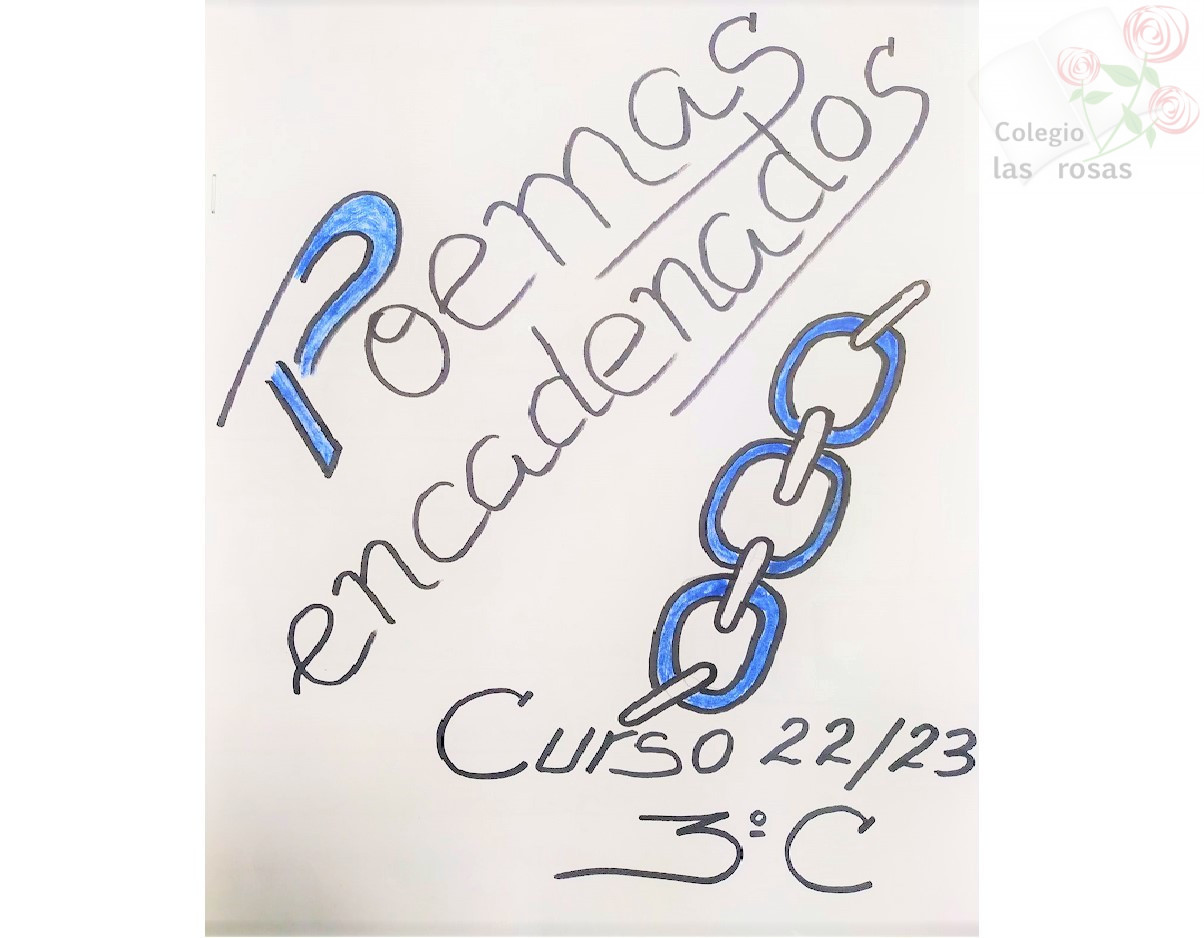 Poemas
encadenados
Curso 22/23
3º C
Colegio
las rosas